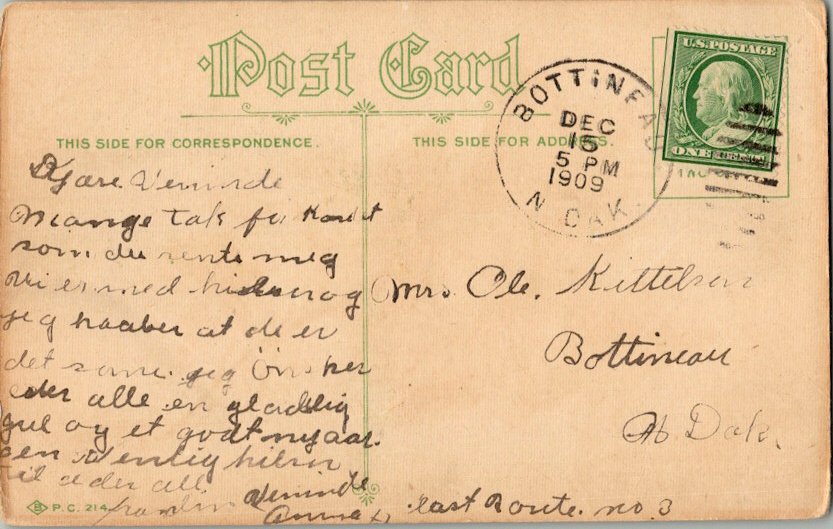 Post Card
THIS SIDE FOR CORRESPONDENCE.
THIS SIDE FOR ADDRESS.
BOTTINEAU
DEC
15
5 PM
1909
N. DAK.
U.S. POSTAGE
ONE
Kjære Veninde
Mange tak for Kortet
som du sente meg
Vi er med helsen og
jeg haaber at de er
det same. jeg Önsker
eder alle en gladelig
jul og et godt nyaar.
en venlig hilsen
til eder alle
fra din Veninde
Anna
Mrs. Ole. Kittelson
Bottineau
N Dak.
east Route. no. 3
P.C. 214